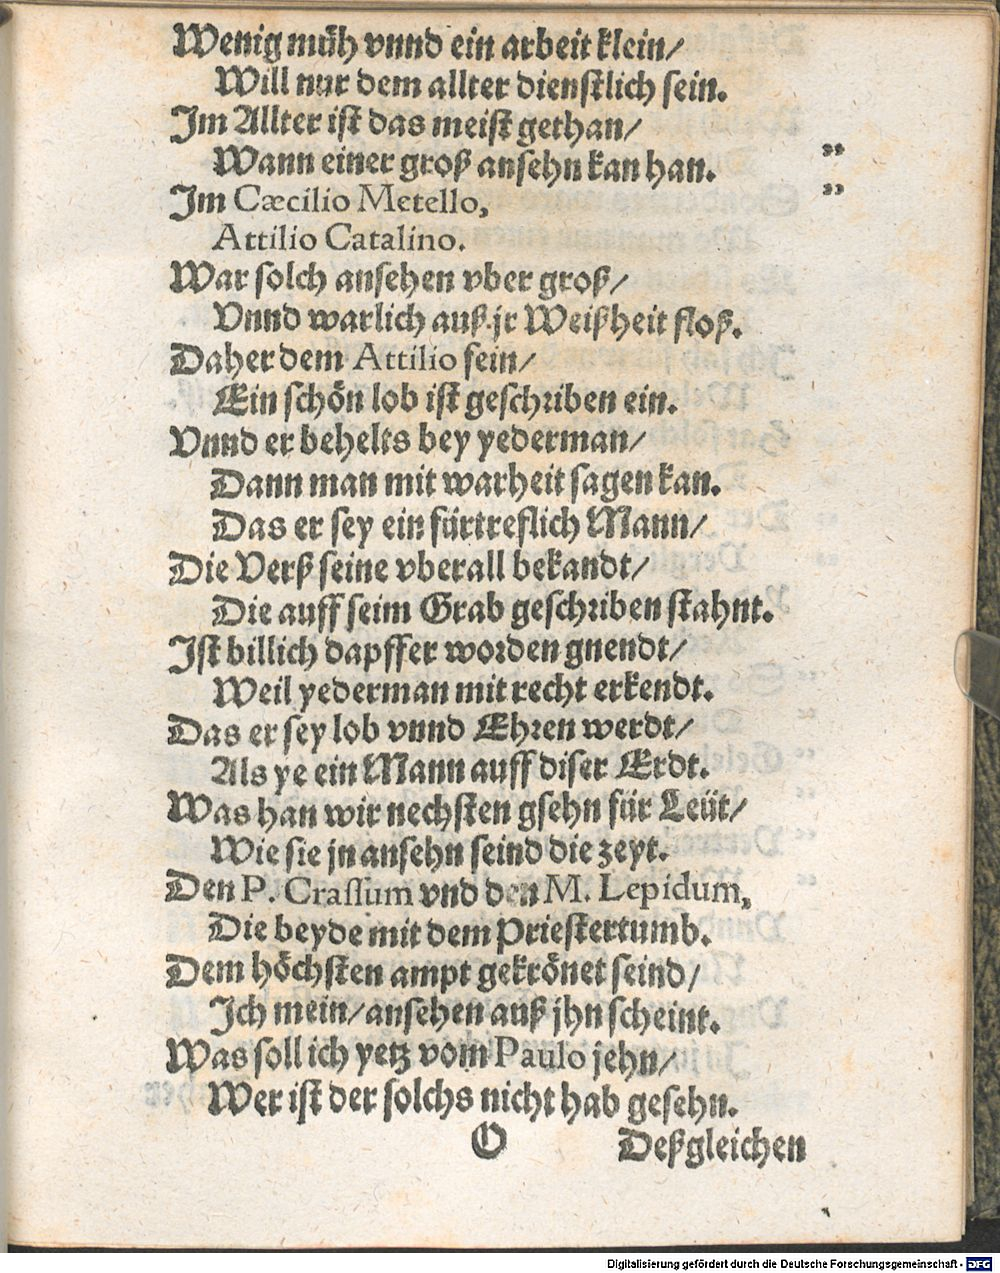 Wenig müh vnnd ein arbeit klein/
Will nur dem allter dienstlich sein.
Im Allter ist das meist gethan/
Wann einer groß ansehn kan han. „
Im Cæcilio Metello, „
Attilio Catalino.
War solch ansehen vber groß/
Vnnd warlich auß jr Weißheit floß.
Daher dem Attilio sein/
Ein schön lob ist geschriben ein.
Vnnd er behelts bey yederman/
Dann man mit warheit sagen kan.
Das er sey ein fürtreflich Mann/
Die Verß seine vberall bekandt/
Die auff seim Grab geschriben stahnt.
Ist billich dapffer worden gnendt/
Weil yederman mit recht erkendt.
Das er sey lob vnnd Ehren werdt/
Als ye ein Mann auff diser Erdt.
Was han wir nechsten gsehn für Leüt/
Wie sie jn ansehn seind die zeyt.
Den P. Crassum vnd den M. Lepidum,
Die beyde mit dem Priestertumb.
Dem höchsten ampt gekrönet seind/
Ich mein/ ansehen auß jhn scheint.
Was soll ich yetz vom Paulo jehn/
Wer ist der solchs nicht hab gesehn.
O Deßgleichen
Digitalisierung gefördert durch die Deutsche Forschungsgemeinschaft - DFG